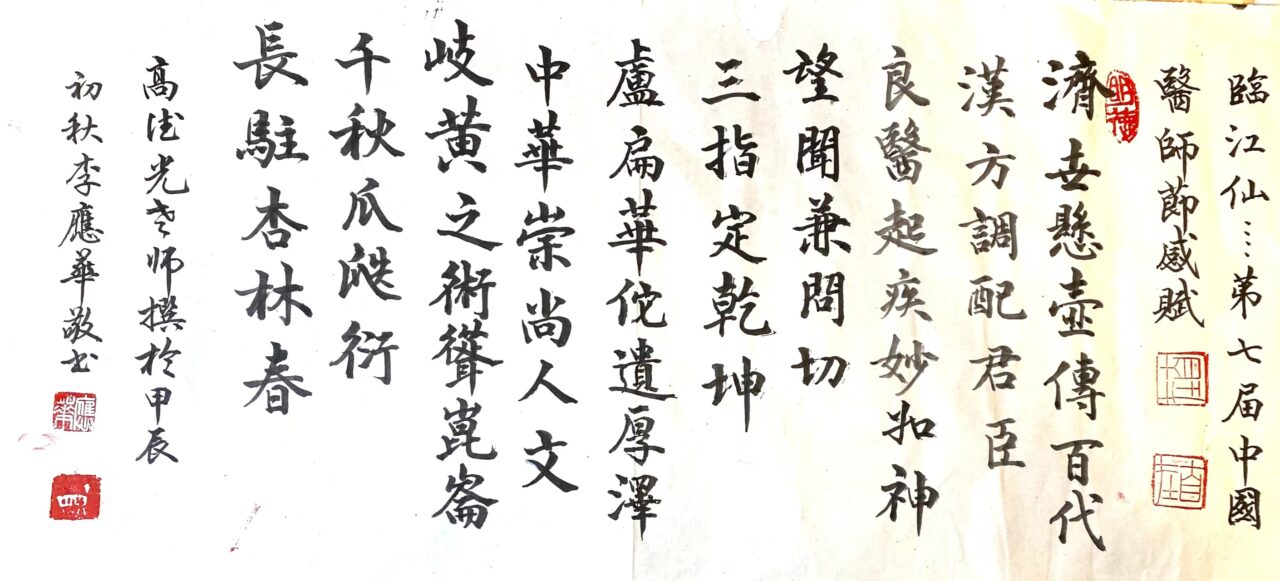 臨江仙……第七届中國
醫師節感賦
明德
濟世懸壺傳百代
漢方調配君臣
良醫起疾妙如神
望聞兼問切
三指定乾坤
盧扁華佗遺厚澤
中華崇尚人文
岐黄之術聳崑崙
千秋瓜瓞衍
長駐杏林春
高德光老师撰於甲辰
初秋李應華敬书
應華